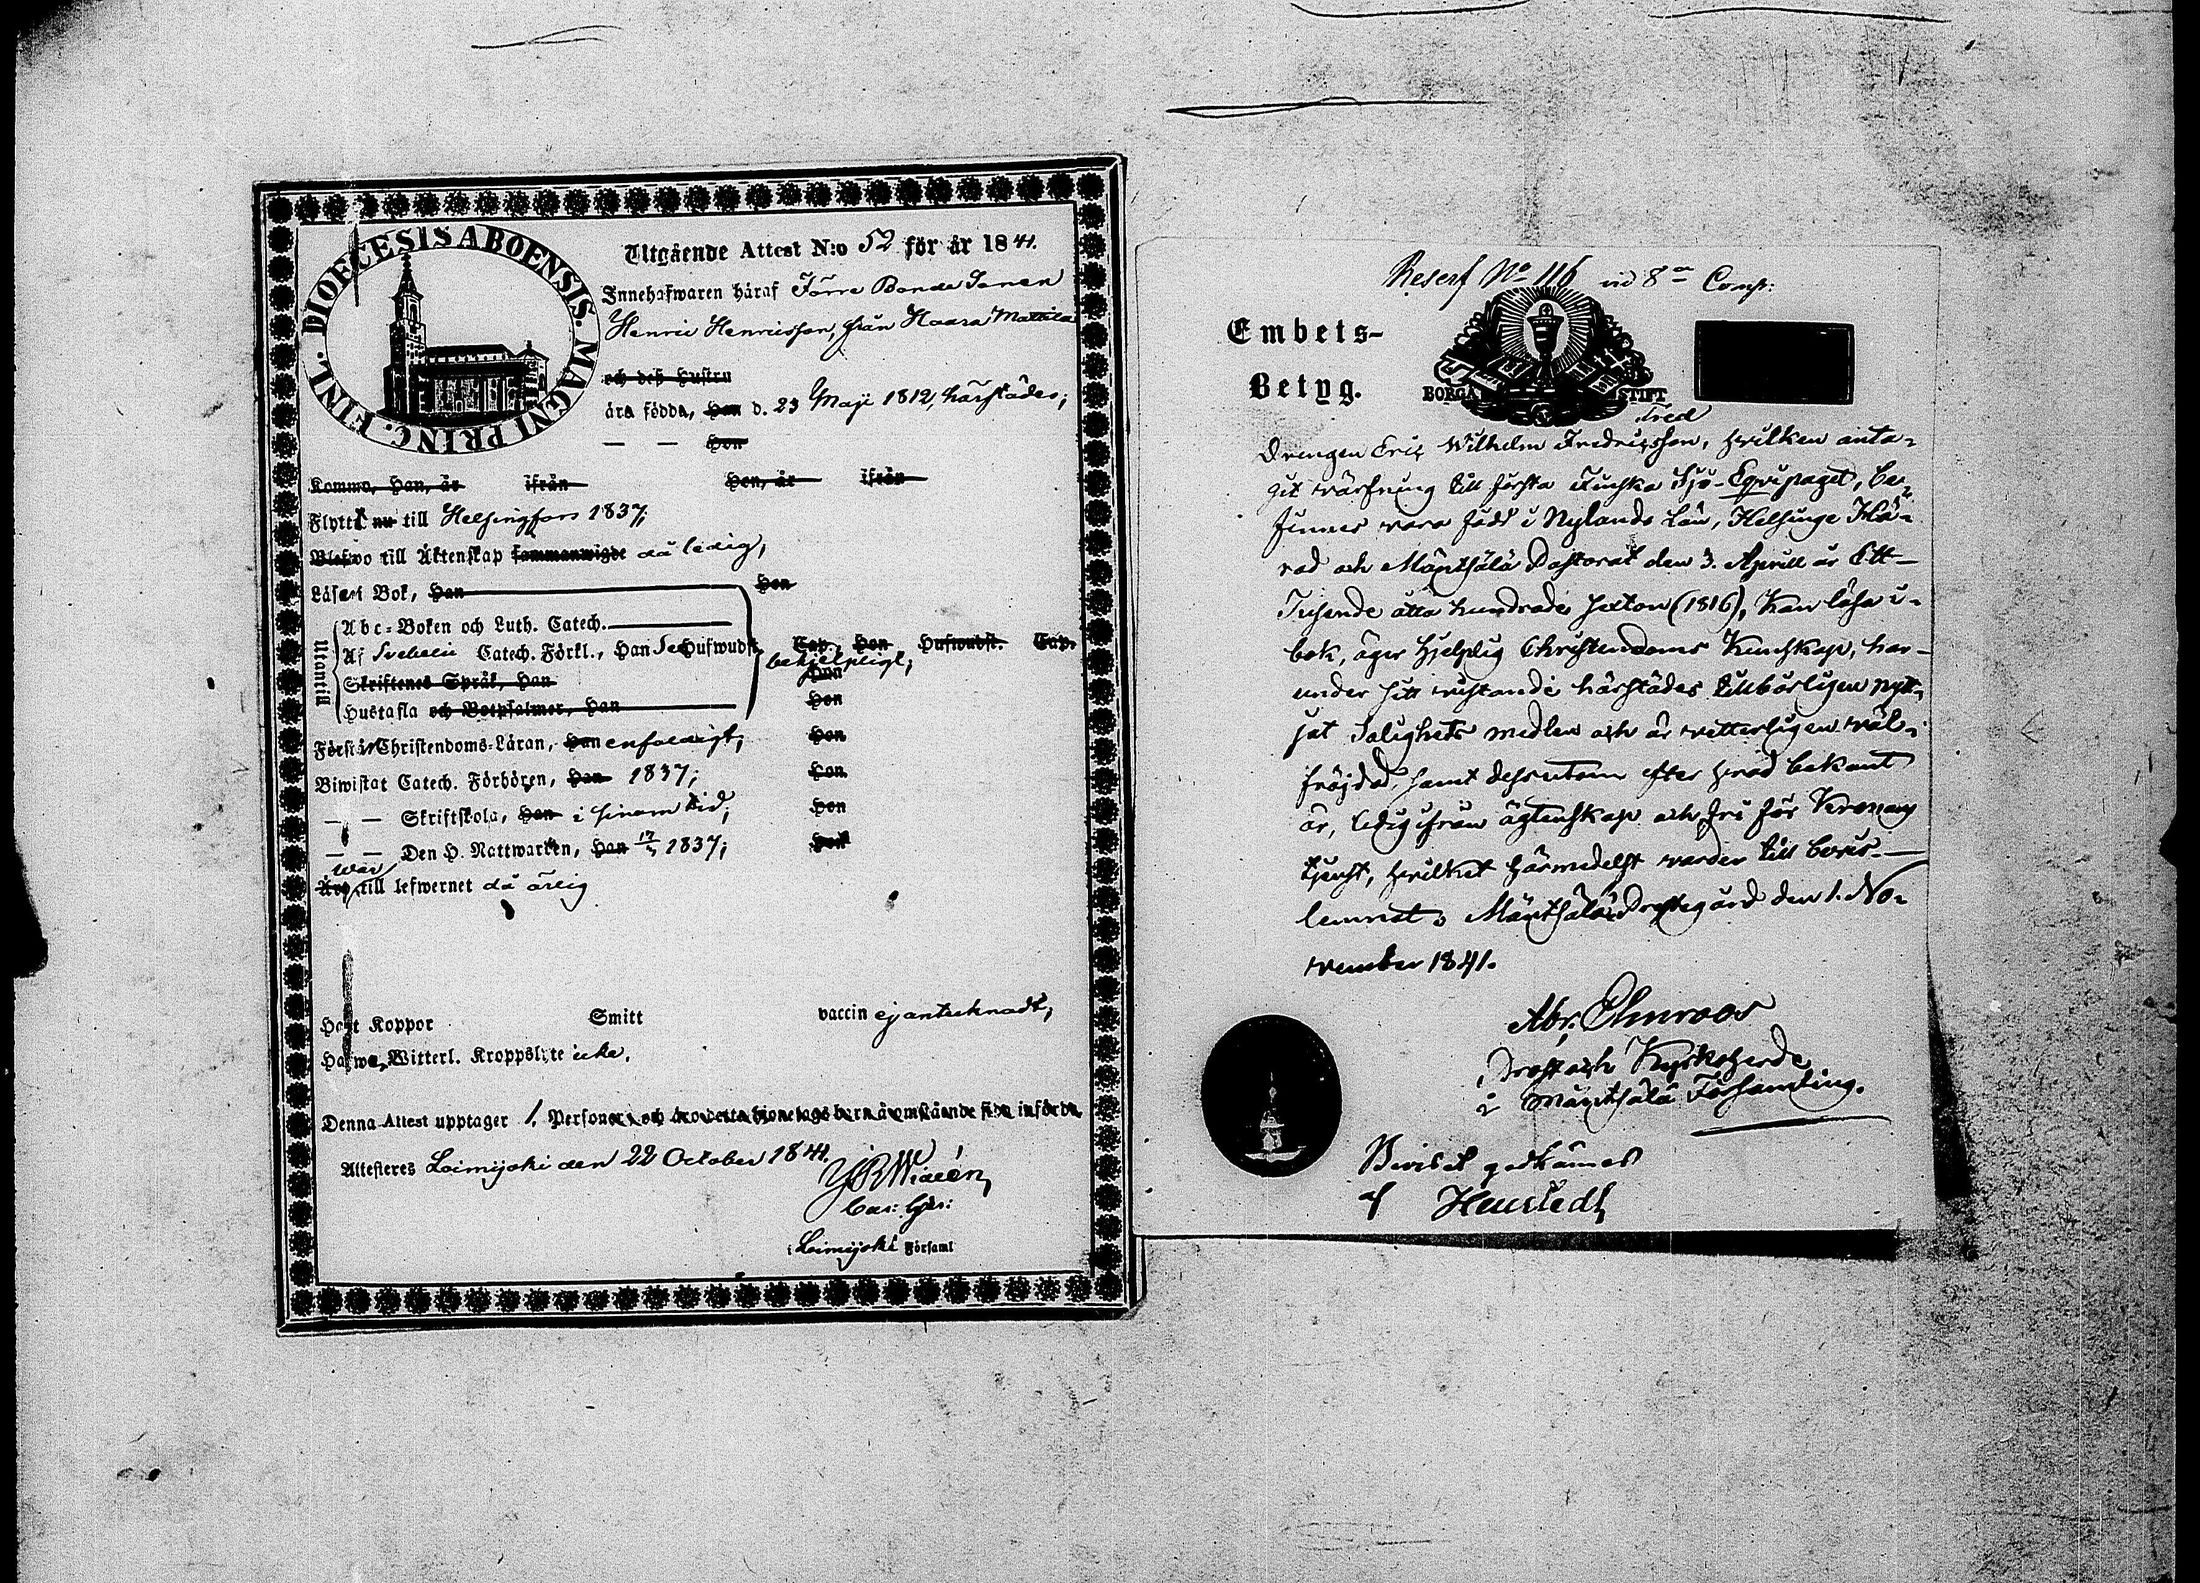 DIOECESIS ABOENSIS. MAGNI PRINC. FINL.
Utgående Attest N:o 52 för år 1841.
Innehafwaren häraf Förre Bonde Sonen
Henric Henricsson, från Haara Mattila
och deß hustru
äro födda, Han d. 23 Maji 1812, härstädes;
— — Hon
Komma, Han, år ifrån Hon, år ifrån
Flytta nu till Helsingfors 1837;
Blefwo till Äktenskap sammanwigde då ledig;
Läser i Bok, Han Hon
Utantill
Abc-Boken och Luth. Catech.
Af Svebelii Catech. Förkl., Han Hufwudst. Cap. Hon Hufwudst. Cap.
behjelpligt;
Skriftenes Språk, Han Hon
Hustafla och Botpsalmer, Han Hon
Förstår Christendoms-Läran, Han enfaldigt; Hon
Biwistat Catech. Förhören, Han 1837; Hon
— — Skriftskola, Han i sinom tid; Hon
— — Den H. Nattwarden, Han 1837; Hon
war
Äro till lefwernet då ärlig
Haft Koppor Smitt vaccin ej antecknadt;
Hafwa Witterl. Kroppslyte icke.
Denna Attest upptager 1. Personer och deras äkta hionelags barn å omstående sida införda
Attesteres Loimijoki den 22 October 1841.
Widén
i Loimijoki Församl
Reserf No 116 vid 8de Comp:
Embets-
Betyg.
BORGÅ STIFT
Fred
Drengen Eric Wilhelm Fredricsson, hvilken anta-
git värfning till första Finska Sjö-Equipaget, be-
finnes vara född i Nylands Län, Helsinge Hä-
rad och Mäntsälä Pastorat den 3. Aprill år Ett-
Tusende åtta hundrade sexton (1816), kan läsa i-
bok, äger hjelplig Christendoms Kunskap, har
under sitt vistande härstädes tillbörligen nytt-
jat Salighets medlen och är vitterligen väl-
fräjdad, samt dessutom efter hvad bekant
är, ledig ifrån ägtenskap och fri för Kronans
tjenst, hvilket härmedelst varder till bevis
lemnat; Mäntsälä Prestegård den 1. No-
vember 1841.
Abr. Elmroos
Prost och Kyrkoherde
i Mäntsälä Församling.
Beviset godkännes
af Heurtedt